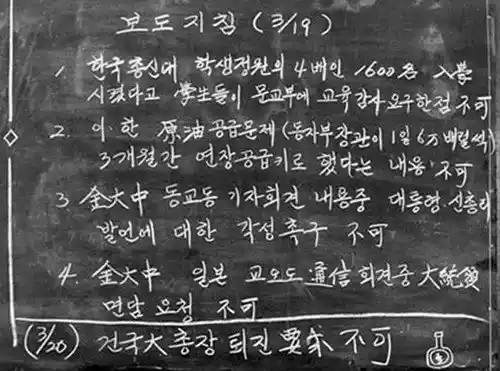 보도지침 (3/19)
1. 한국총신대 학생정원의 4배인 1600名 入學
시켰다고 学生들이 문교부에 교육감사 요구한점 不可
2. 이·한 原油 공급문제 (동자부장관이 1일 6万 배럴씩)
3개월간 연장공급키로 했다는 내용 不可
3. 金大中 동교동 기자회견 내용중 대통령, 신총리
발언에 대한 각성촉구 不可
4. 金大中 일본 교오도 通信 회견중 大統領
면담 요청 不可
(3/20) 건국大 총장 퇴진 要求 不可